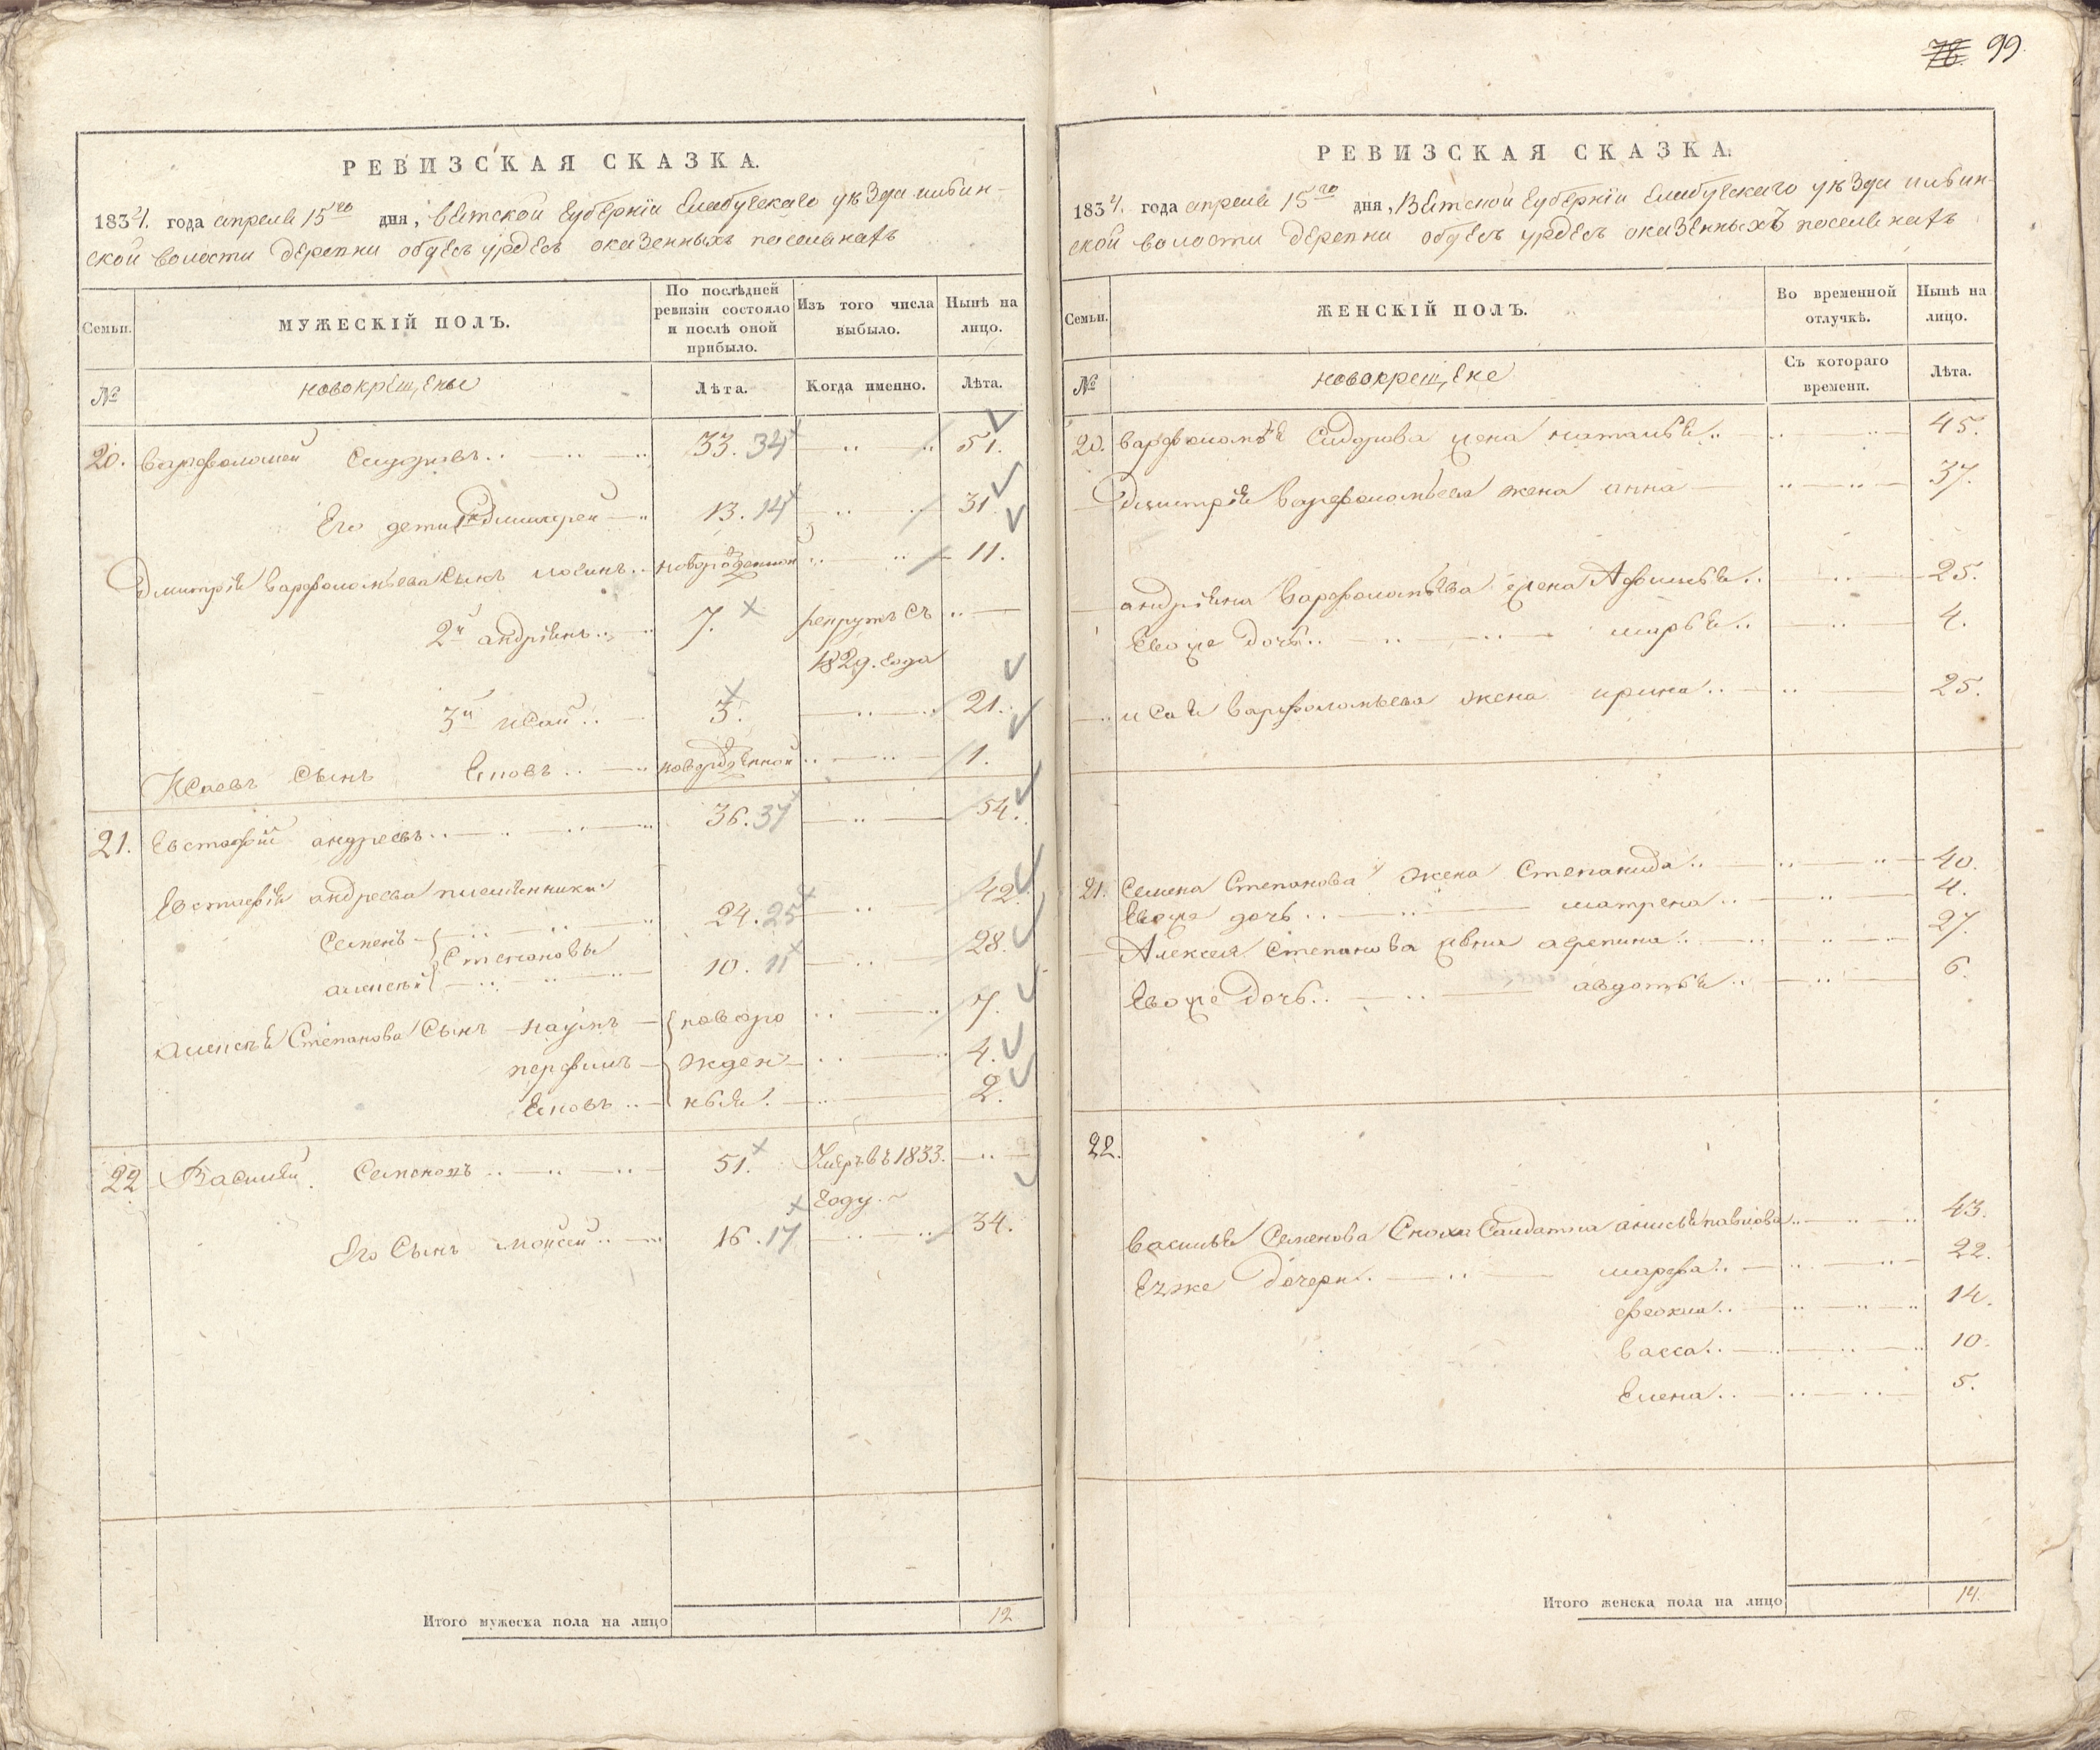 76. 99.
РЕВИЗСКАЯ СКАЗКА.
1834. года апреля 15го дня, Вятской губернiи Елабугскаго уѣзда
ской волости деревни оказенныхъ поселянахъ
Семьи. МУЖЕСКІЙ ПОЛЪ. По послѣдней ревизіи состояло и послѣ оной прибыло. Изъ того числа выбыло. Нынѣ на лицо.
№ новокрещеные Лѣта. Когда именно. Лѣта.
20. Варфоломей Сидоровъ.. 33. 34 51.
Его дети 1й Дмитрей 13. 14 31
Дмитрiя Варфоломѣева сынъ новорожденной 11.
2й андрiянъ.. 7. рекрутъ съ
1829. года
3й исай.. 3. 21.
Исаевъ Сынъ новорожденной 1.
21. Евстафiй андреевъ.. 36. 37 54.
Евстафiя андреева племянники
Семенъ 24. 25 42.
Степановы
алексѣй 10. 11 28.
алексѣя Степанова Сынъ наумъ новоро 7.
перфилъ жден 4.
ныя. 2.
22 Василей Семеновъ.. 51. Умеръ в 1833.
году.
Его Сынъ мойсей.. 16. 17 34.
Итого мужеска пола на лицо 12
РЕВИЗСКАЯ СКАЗКА.
1834. года апреля 15го дня, Вятской губернiи Елабугскаго уѣзда
ской волости деревни оказенныхъ поселянахъ
Семьи. ЖЕНСКІЙ ПОЛЪ. Во временной отлучкѣ. Нынѣ на лицо.
№ новокрещене Съ котораго времени. Лѣта.
20. варфоломѣя Сидорова жена наталья.. 45.
Дмитрiя варфоломѣева жена анна 37.
андрiяна варфоломѣева жена Афимья.. 25.
Евоже дочь.. марья.. 4.
исая варфоломѣева жена ирина.. 25.
21. Семена Степанова жена Степанида.. 40.
Евоже дочь.. матрена.. 4.
Алексея Степанова жена афепина.. 27.
Евоже дочь.. авдотья.. 6.
22.
василья Семенова Сноха Салдатка анисья павлова.. 43.
Еяже дочери.. марфа.. 22.
фекла.. 14.
васса.. 10.
Елена.. 5.
Итого женска пола на лицо 14.